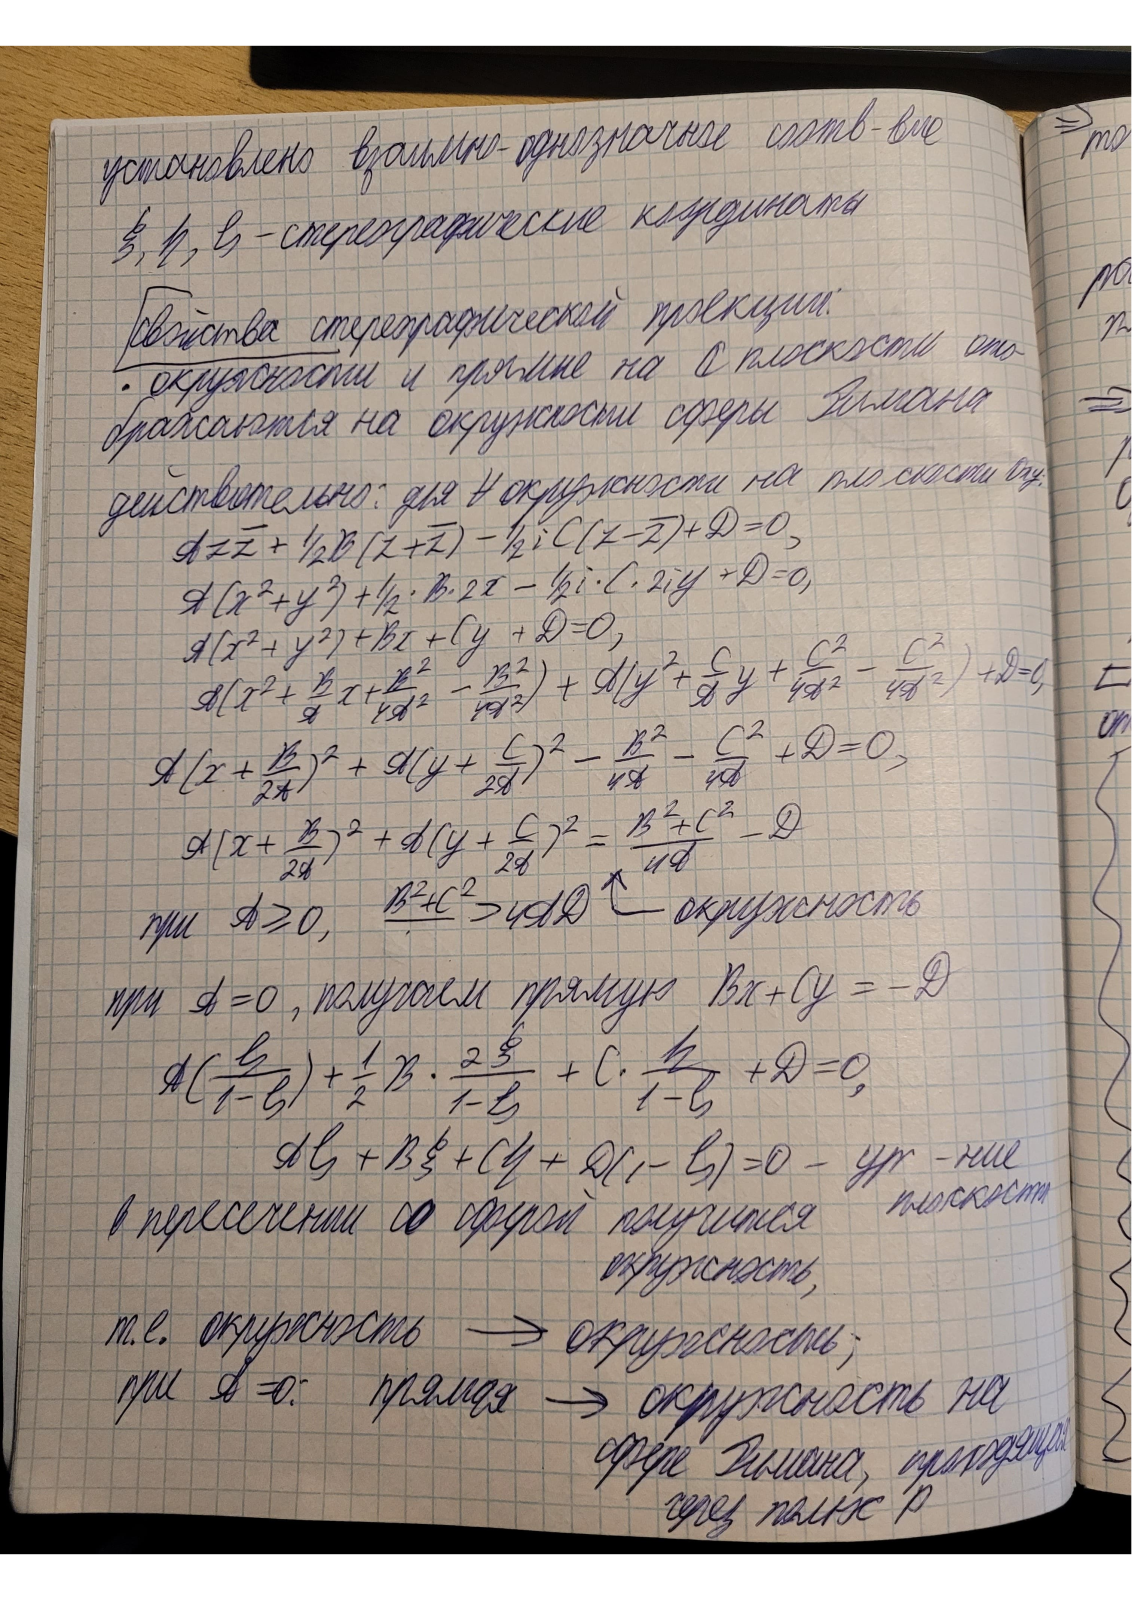 установлено взаимно-однозначное соотв-вие
ξ, η, ζ – стереографические координаты
свойства стереографической проекции:
· окружности и прямые на ℂ плоскости ото-
бражаются на окружности сферы Римана
действительно: для ∀ окружности на плоскости Oxy:
Azz̄ + 1/2B(z+z̄) - 1/2iC(z-z̄)+D=0,
A(x²+y²)+1/2·B·2x - 1/2i·C·2iy+D=0,
A(x²+y²)+Bx+Cy+D=0,
A(x²+B/A x+B²/4A² - B²/4A²)+A(y²+C/A y+C²/4A² - C²/4A²)+D=0,
A(x+B/2A)²+A(y+C/2A)² - B²/4A - C²/4A+D=0,
A(x+B/2A)²+A(y+C/2A)² = (B²+C²)/4A - D
при A≥0, B²+C²>4AD ↑— окружность
при A=0, получаем прямую Bx+Cy=-D
A(ζ/(1-ζ))+1/2 B·2ξ/(1-ζ)+C·η/(1-ζ)+D=0,
Aζ+Bξ+Cη+D(1-ζ)=0 – ур-ние
плоскости
в пересечении со сферой получится
окружность,
т.е. окружность → окружность;
при A=0: прямая → окружность на
сфере Римана, проходящая
через полюс P